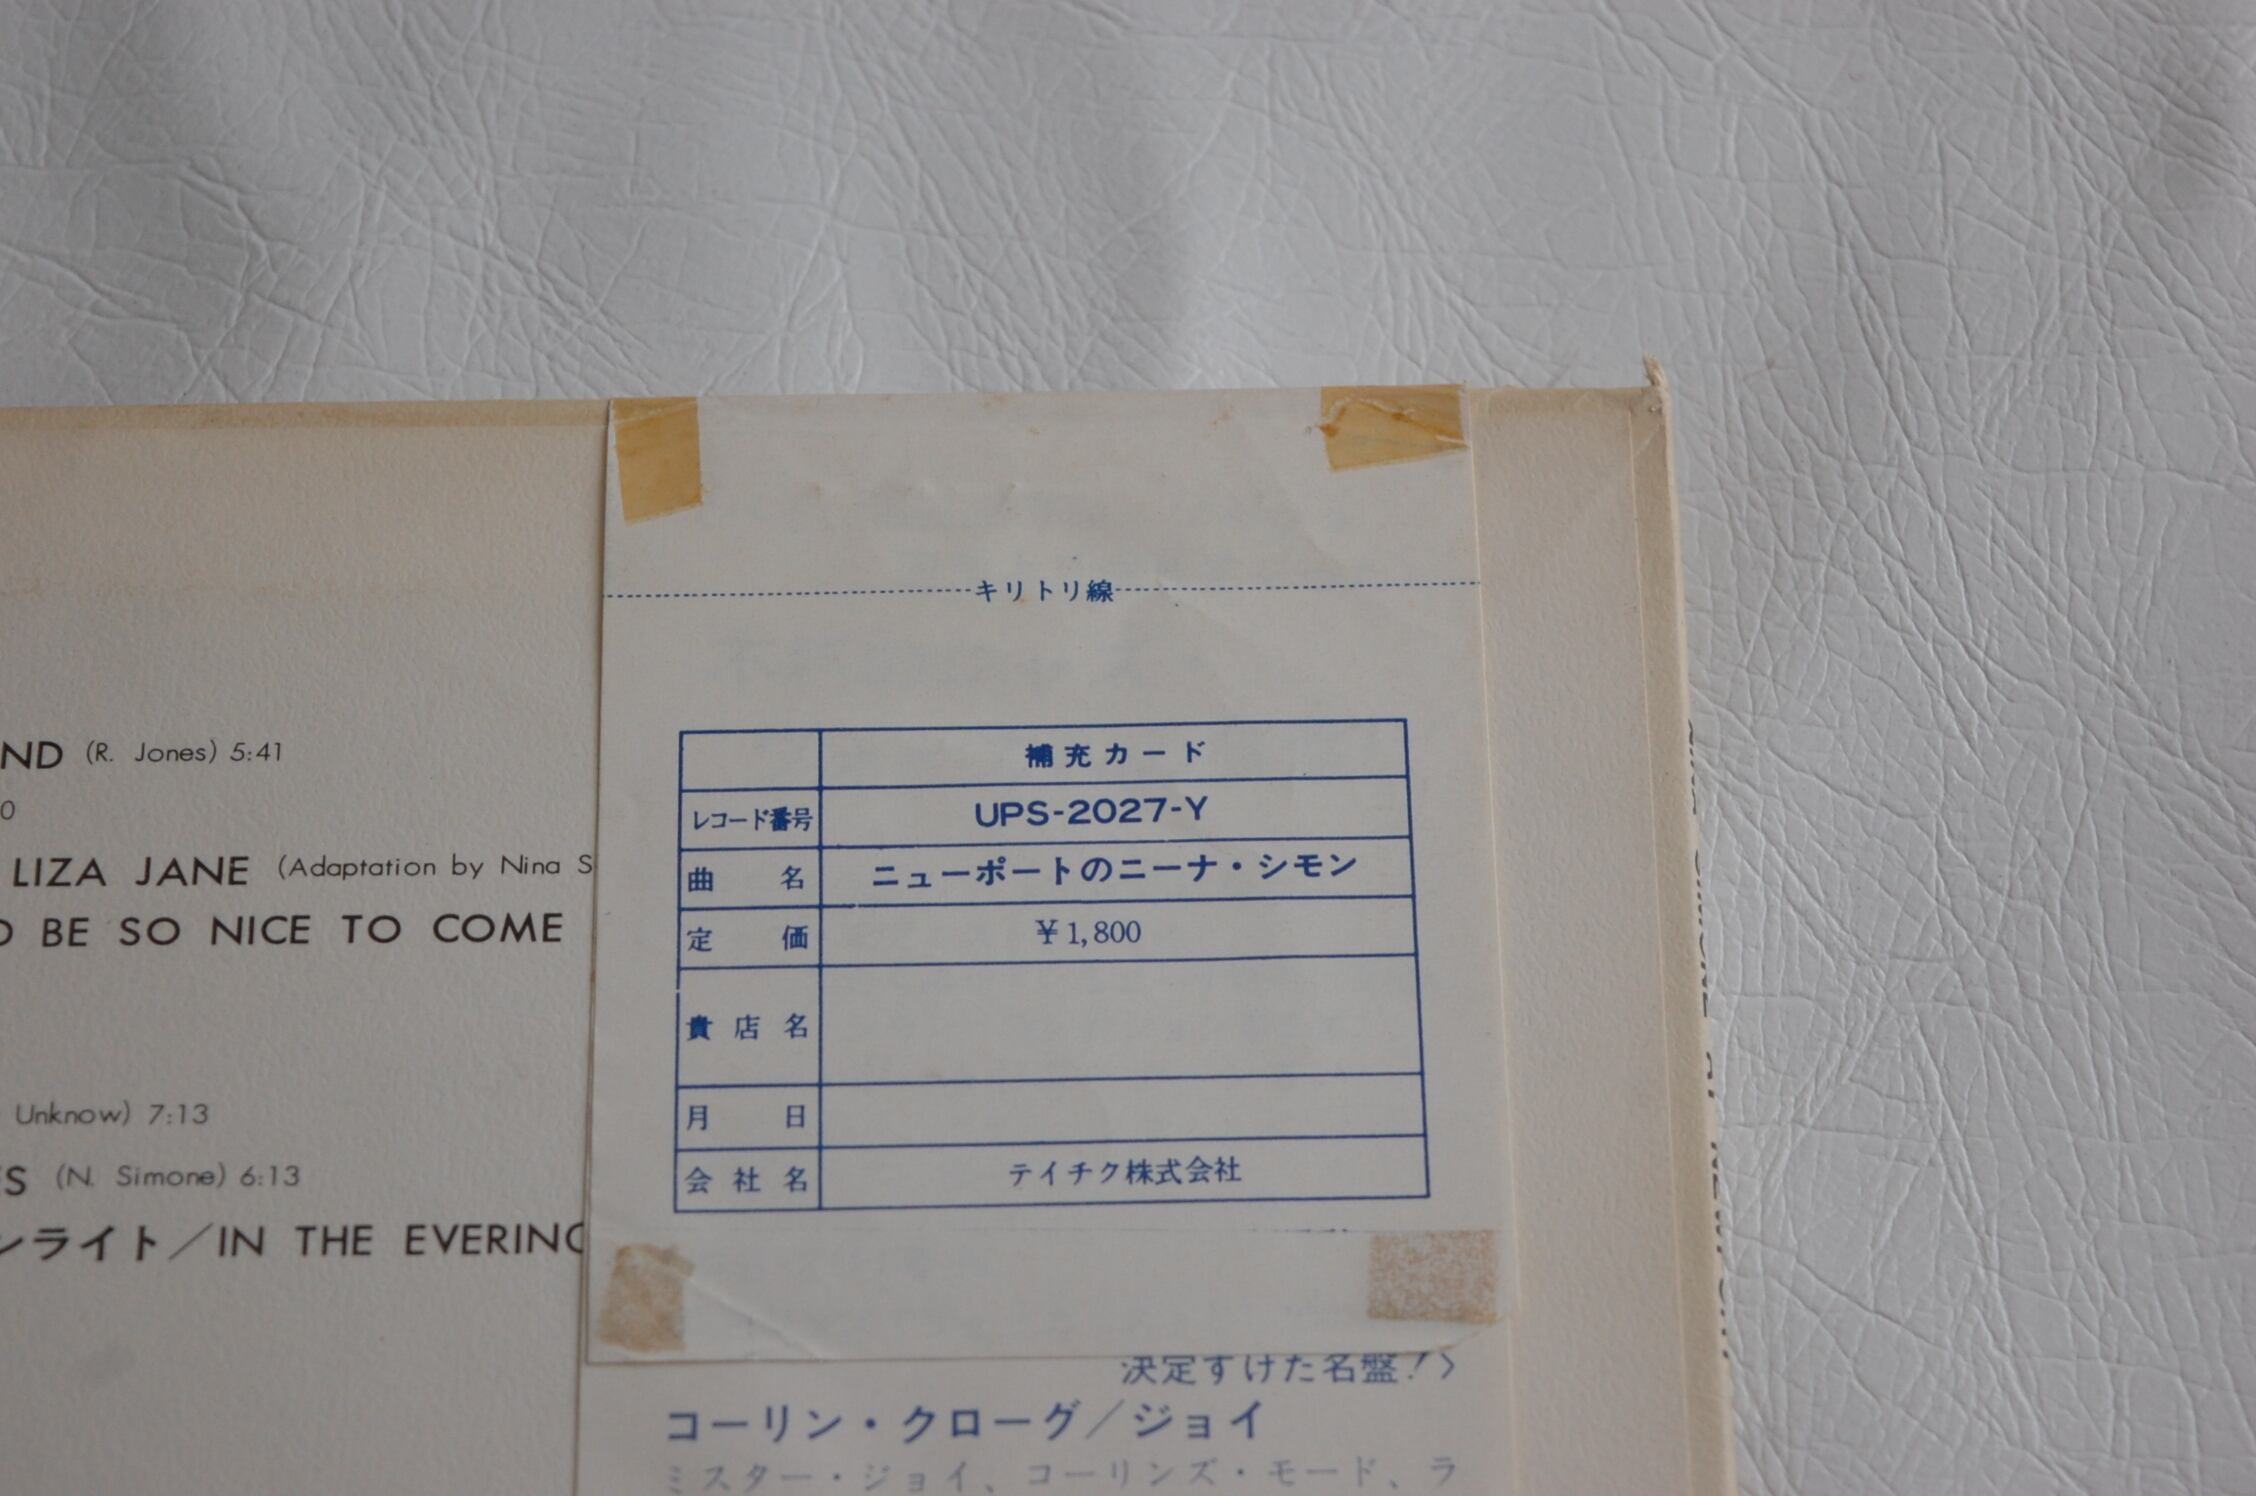 ND (R. Jones) 5:41
0
LIZA JANE (Adaptation by Nina S
BE SO NICE TO COME
Unknow) 7:13
S (N. Simone) 6:13
ンライト／IN THE EVERING
キリトリ線
補充カード
レコード番号 UPS-2027-Y
曲名 ニューポートのニーナ・シモン
定価 ¥1,800
貴店名
月日
会社名 テイチク株式会社
決定すけた名盤！〉
コーリン・クローグ／ジョイ
ミスター・ジョイ、コーリンズ・モード、ラ
NINA SIMONE AT NEWPORT